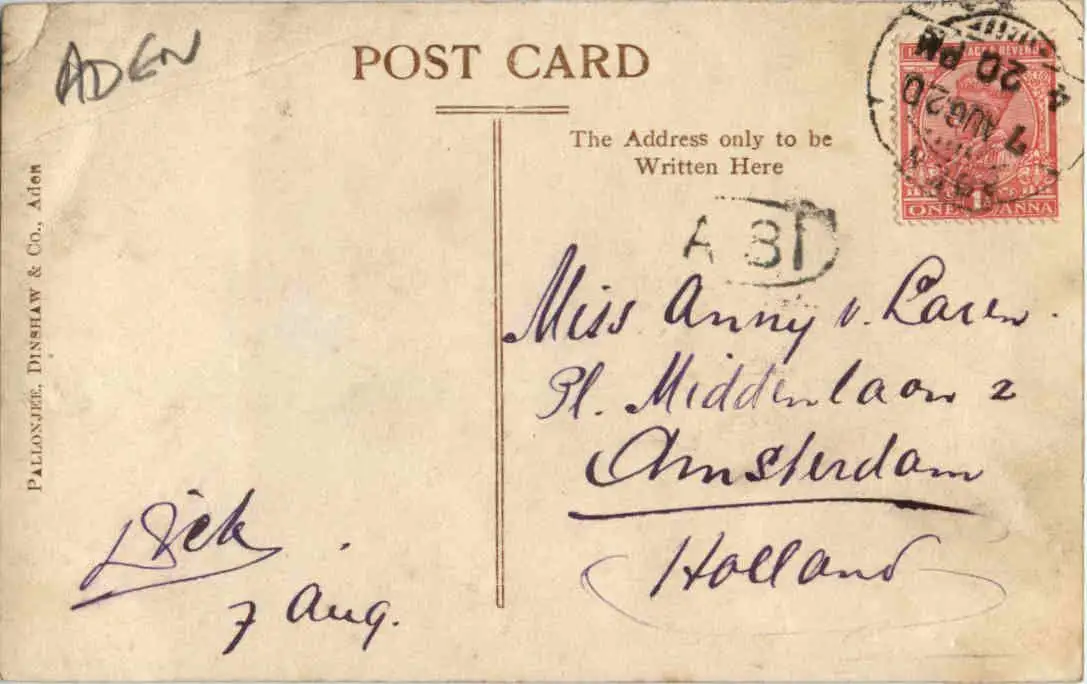 ADEN
POST CARD
The Address only to be
Written Here
4
20 PM
7
AUG 20
ONE ANNA
A B
Miss Anny v. Laren.
Pl. Middenlaan 2
Amsterdam
Holland
Dick.
7 Aug.
PALLONJEE, DINSHAW & Co., Aden